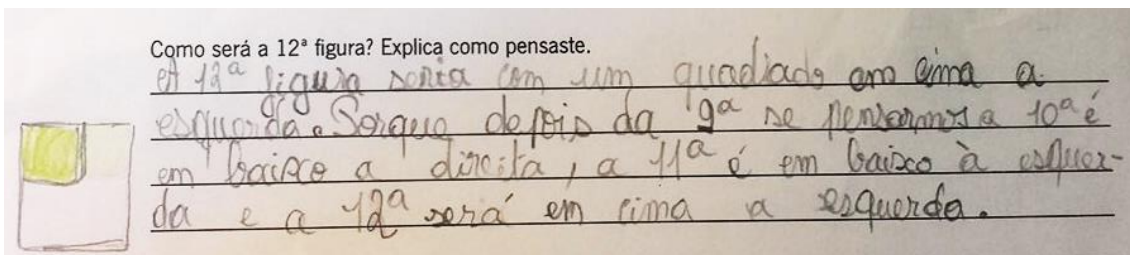 Como será a 12ª figura? Explica como pensaste.
A 12ª figura seria com um quadrado em cima a
esquerda. Porque depois da 9ª se pensarmos a 10ª é
em baixo a direita, a 11ª é em baixo à esquer-
da e a 12ª será em cima a esquerda.